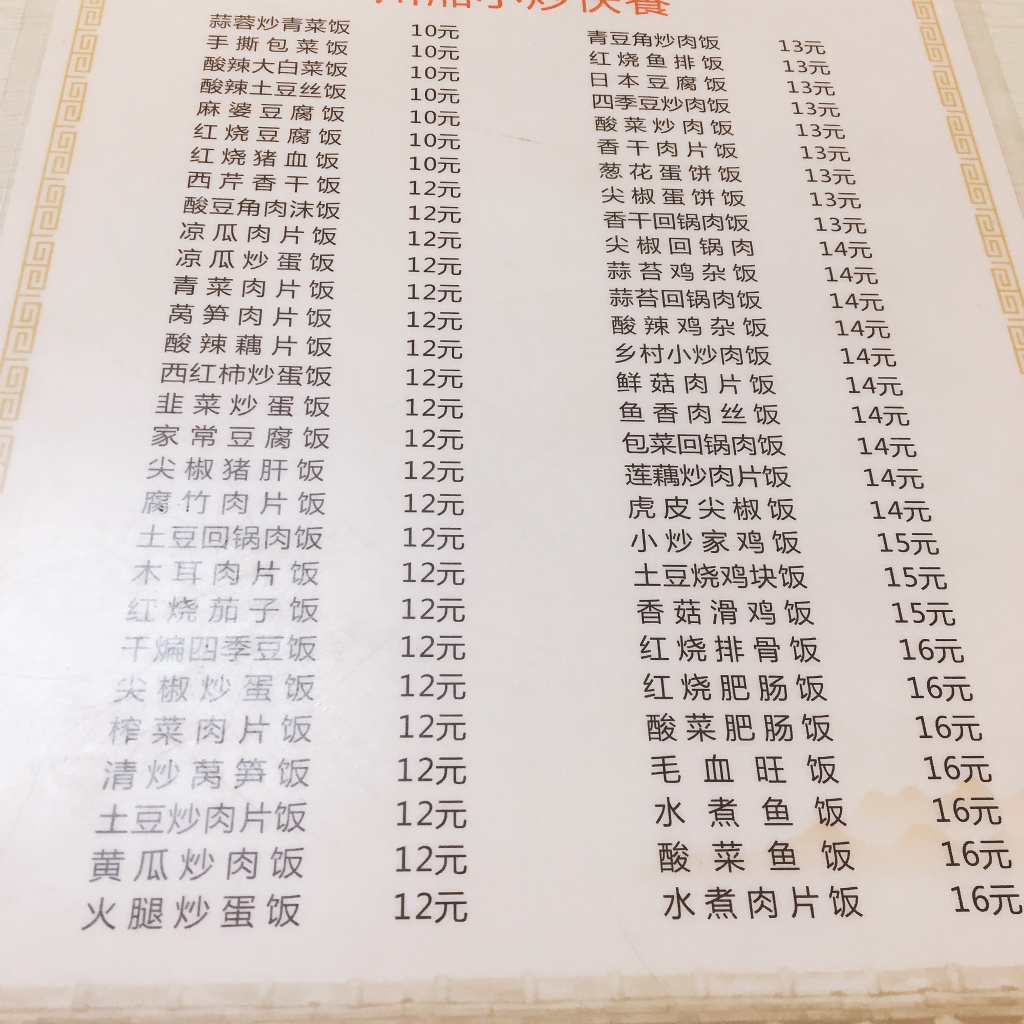 川湘小炒快餐
蒜蓉炒青菜饭 10元
手撕包菜饭 10元
酸辣大白菜饭 10元
酸辣土豆丝饭 10元
麻婆豆腐饭 10元
红烧豆腐饭 10元
红烧猪血饭 10元
西芹香干饭 12元
酸豆角肉沫饭 12元
凉瓜肉片饭 12元
凉瓜炒蛋饭 12元
青菜肉片饭 12元
莴笋肉片饭 12元
酸辣藕片饭 12元
西红柿炒蛋饭 12元
韭菜炒蛋饭 12元
家常豆腐饭 12元
尖椒猪肝饭 12元
腐竹肉片饭 12元
土豆回锅肉饭 12元
木耳肉片饭 12元
红烧茄子饭 12元
干煸四季豆饭 12元
尖椒炒蛋饭 12元
榨菜肉片饭 12元
清炒莴笋饭 12元
土豆炒肉片饭 12元
黄瓜炒肉饭 12元
火腿炒蛋饭 12元
青豆角炒肉饭 13元
红烧鱼排饭 13元
日本豆腐饭 13元
四季豆炒肉饭 13元
酸菜炒肉饭 13元
香干肉片饭 13元
葱花蛋饼饭 13元
尖椒蛋饼饭 13元
香干回锅肉饭 13元
尖椒回锅肉 14元
蒜苔鸡杂饭 14元
蒜苔回锅肉饭 14元
酸辣鸡杂饭 14元
乡村小炒肉饭 14元
鲜菇肉片饭 14元
鱼香肉丝饭 14元
包菜回锅肉饭 14元
莲藕炒肉片饭 14元
虎皮尖椒饭 14元
小炒家鸡饭 15元
土豆烧鸡块饭 15元
香菇滑鸡饭 15元
红烧排骨饭 16元
红烧肥肠饭 16元
酸菜肥肠饭 16元
毛血旺饭 16元
水煮鱼饭 16元
酸菜鱼饭 16元
水煮肉片饭 16元